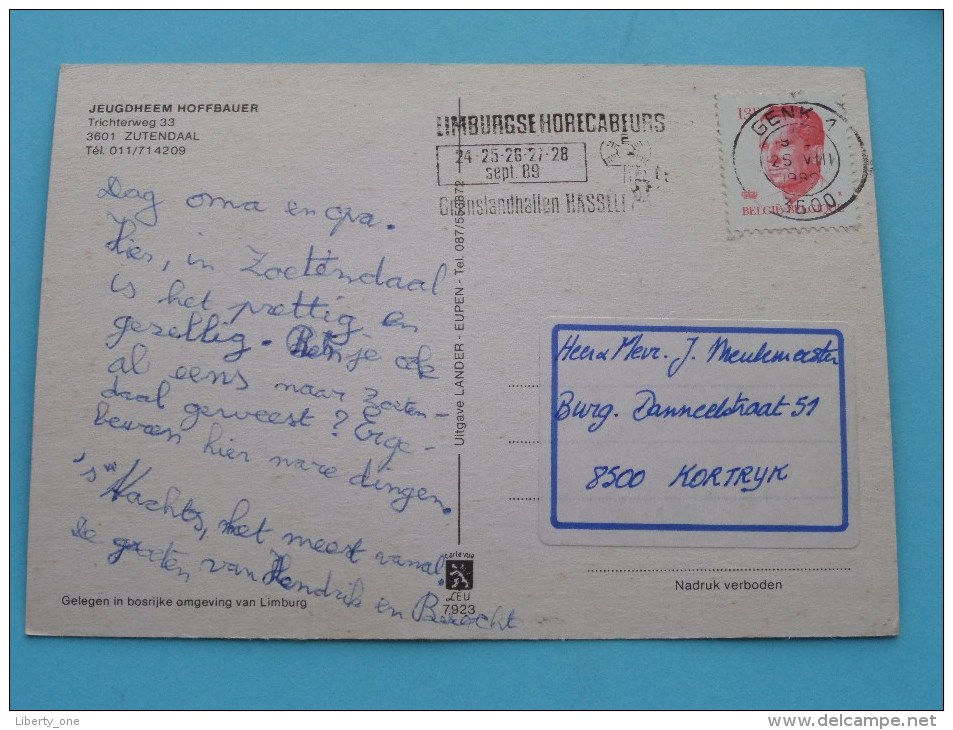 JEUGDHEEM HOFFBAUER
Trichterweg 33
3601 ZUTENDAAL
Tél. 011/714209
Dag oma en opa.
Hier, in Zoetendaal
is het prettig en
gezellig. Ben je ook
al eens naar zoeten-
daal geweest? Erge-
beuren hier nare dingen.
's Nachts, het meest vanal.
De groeten van Hendrik en
Gelegen in bosrijke omgeving van Limburg
Uitgave LANDER - EUPEN - Tel. 087/556872
carte vue
LEU
7923
LIMBURGSE HORECABEURS
24-25-26-27-28
sept. '89
Grenslandhallen HASSELT
GENK 1
25 VIII
3600
13F
BELGIË-BELGIQUE
Heer & Mevr. J. Meulemeester
Burg. Danneelstraat 51
8500 KORTRIJK
Nadruk verboden
Liberty_one
delcampe.net